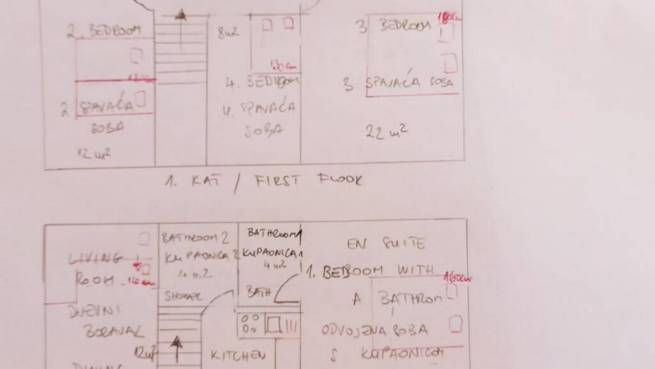 2. BEDROOM
2. SPAVAĆA
SOBA
12 m²
8 m²
4. BEDROOM
4. SPAVAĆA
SOBA
3 BEDROOM
180cm
3. SPAVAĆA SOBA
22 m²
1. KAT / FIRST FLOOR
LIVING
ROOM
DNEVNI
BORAVAK
12m²
BATHROOM 2
KUPAONICA 2
SHOWER
BATHROOM 1
KUPAONICA 1
4 m²
BATH
KITCHEN
EN SUITE
1. BEDROOM WITH
160cm
A BATHROM
ODVOJENA SOBA
S KUPAONICOM